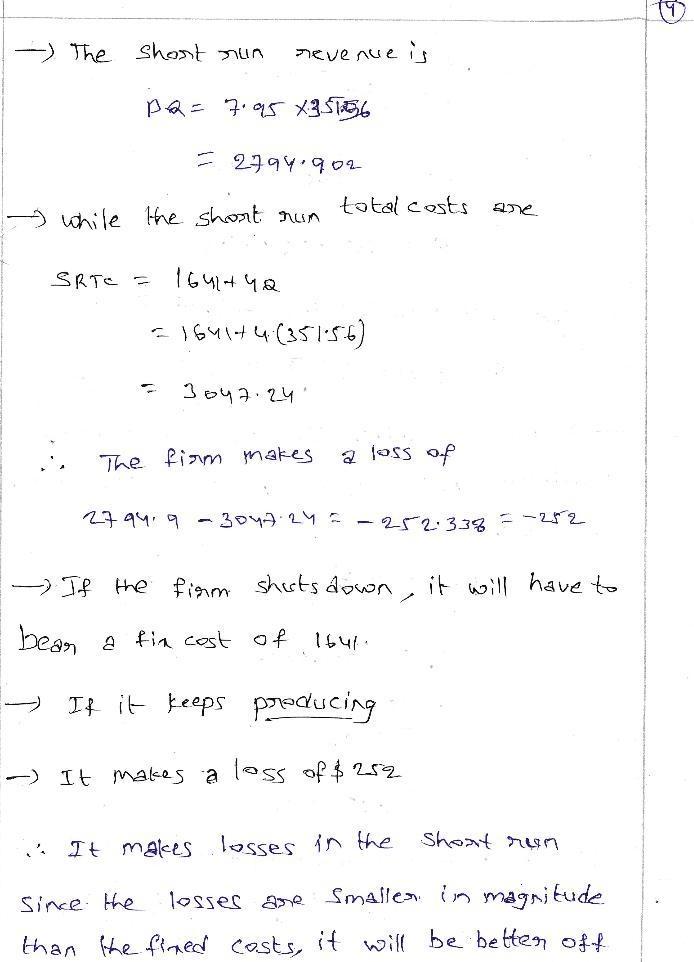 4
→ The short run revenue is
PQ = 7.95 × 351.56
= 2794.902
→ while the short run total costs are
SRTC = 1641+4Q
= 1641+4(351.56)
= 3047.24
∴ The firm makes a loss of
2794.9 - 3047.24 = -252.338 = -252
→ If the firm shuts down, it will have to
bear a fix cost of 1641.
→ If it keeps producing
→ It makes a loss of $ 252
∴ It makes losses in the short run
Since the losses are smaller in magnitude
than the fixed costs, it will be better off